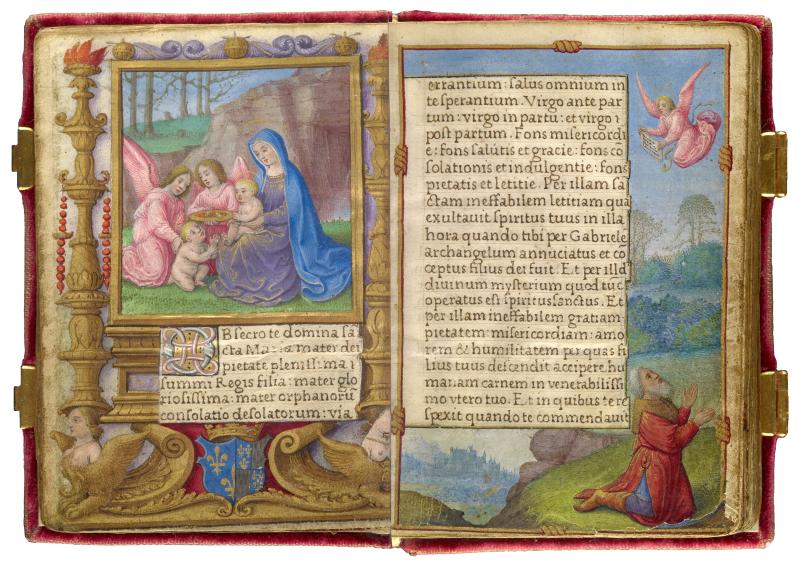 OBsecro te domina sa
cta Maria mater dei
pietate plenissima:
summi Regis filia: mater glo
riosissima: mater orphanoru
consolatio desolatorum: via
errantium: salus omnium in
te sperantium. Virgo ante par
tum: virgo in partu: et virgo
post partum. Fons misericordi
e: fons salutis et gracie: fons co
solationis et indulgentie: fons
pietatis et letitie. Per illam sa
ctam ineffabilem letitiam qua
exultauit spiritus tuus in illa
hora quando tibi per Gabriele
archangelum annuciatus et co
ceptus filius dei fuit. Et per illud
diuinum mysterium quod tuc
operatus est spiritus sanctus. Et
per illam ineffabilem gratiam
pietatem: misericordiam: amo
rem & humilitatem per quas fi
lius tuus descendit accipere hu
manam carnem in venerabilissi
mo vtero tuo. Et in quibus te re
spexit quando te commendauit